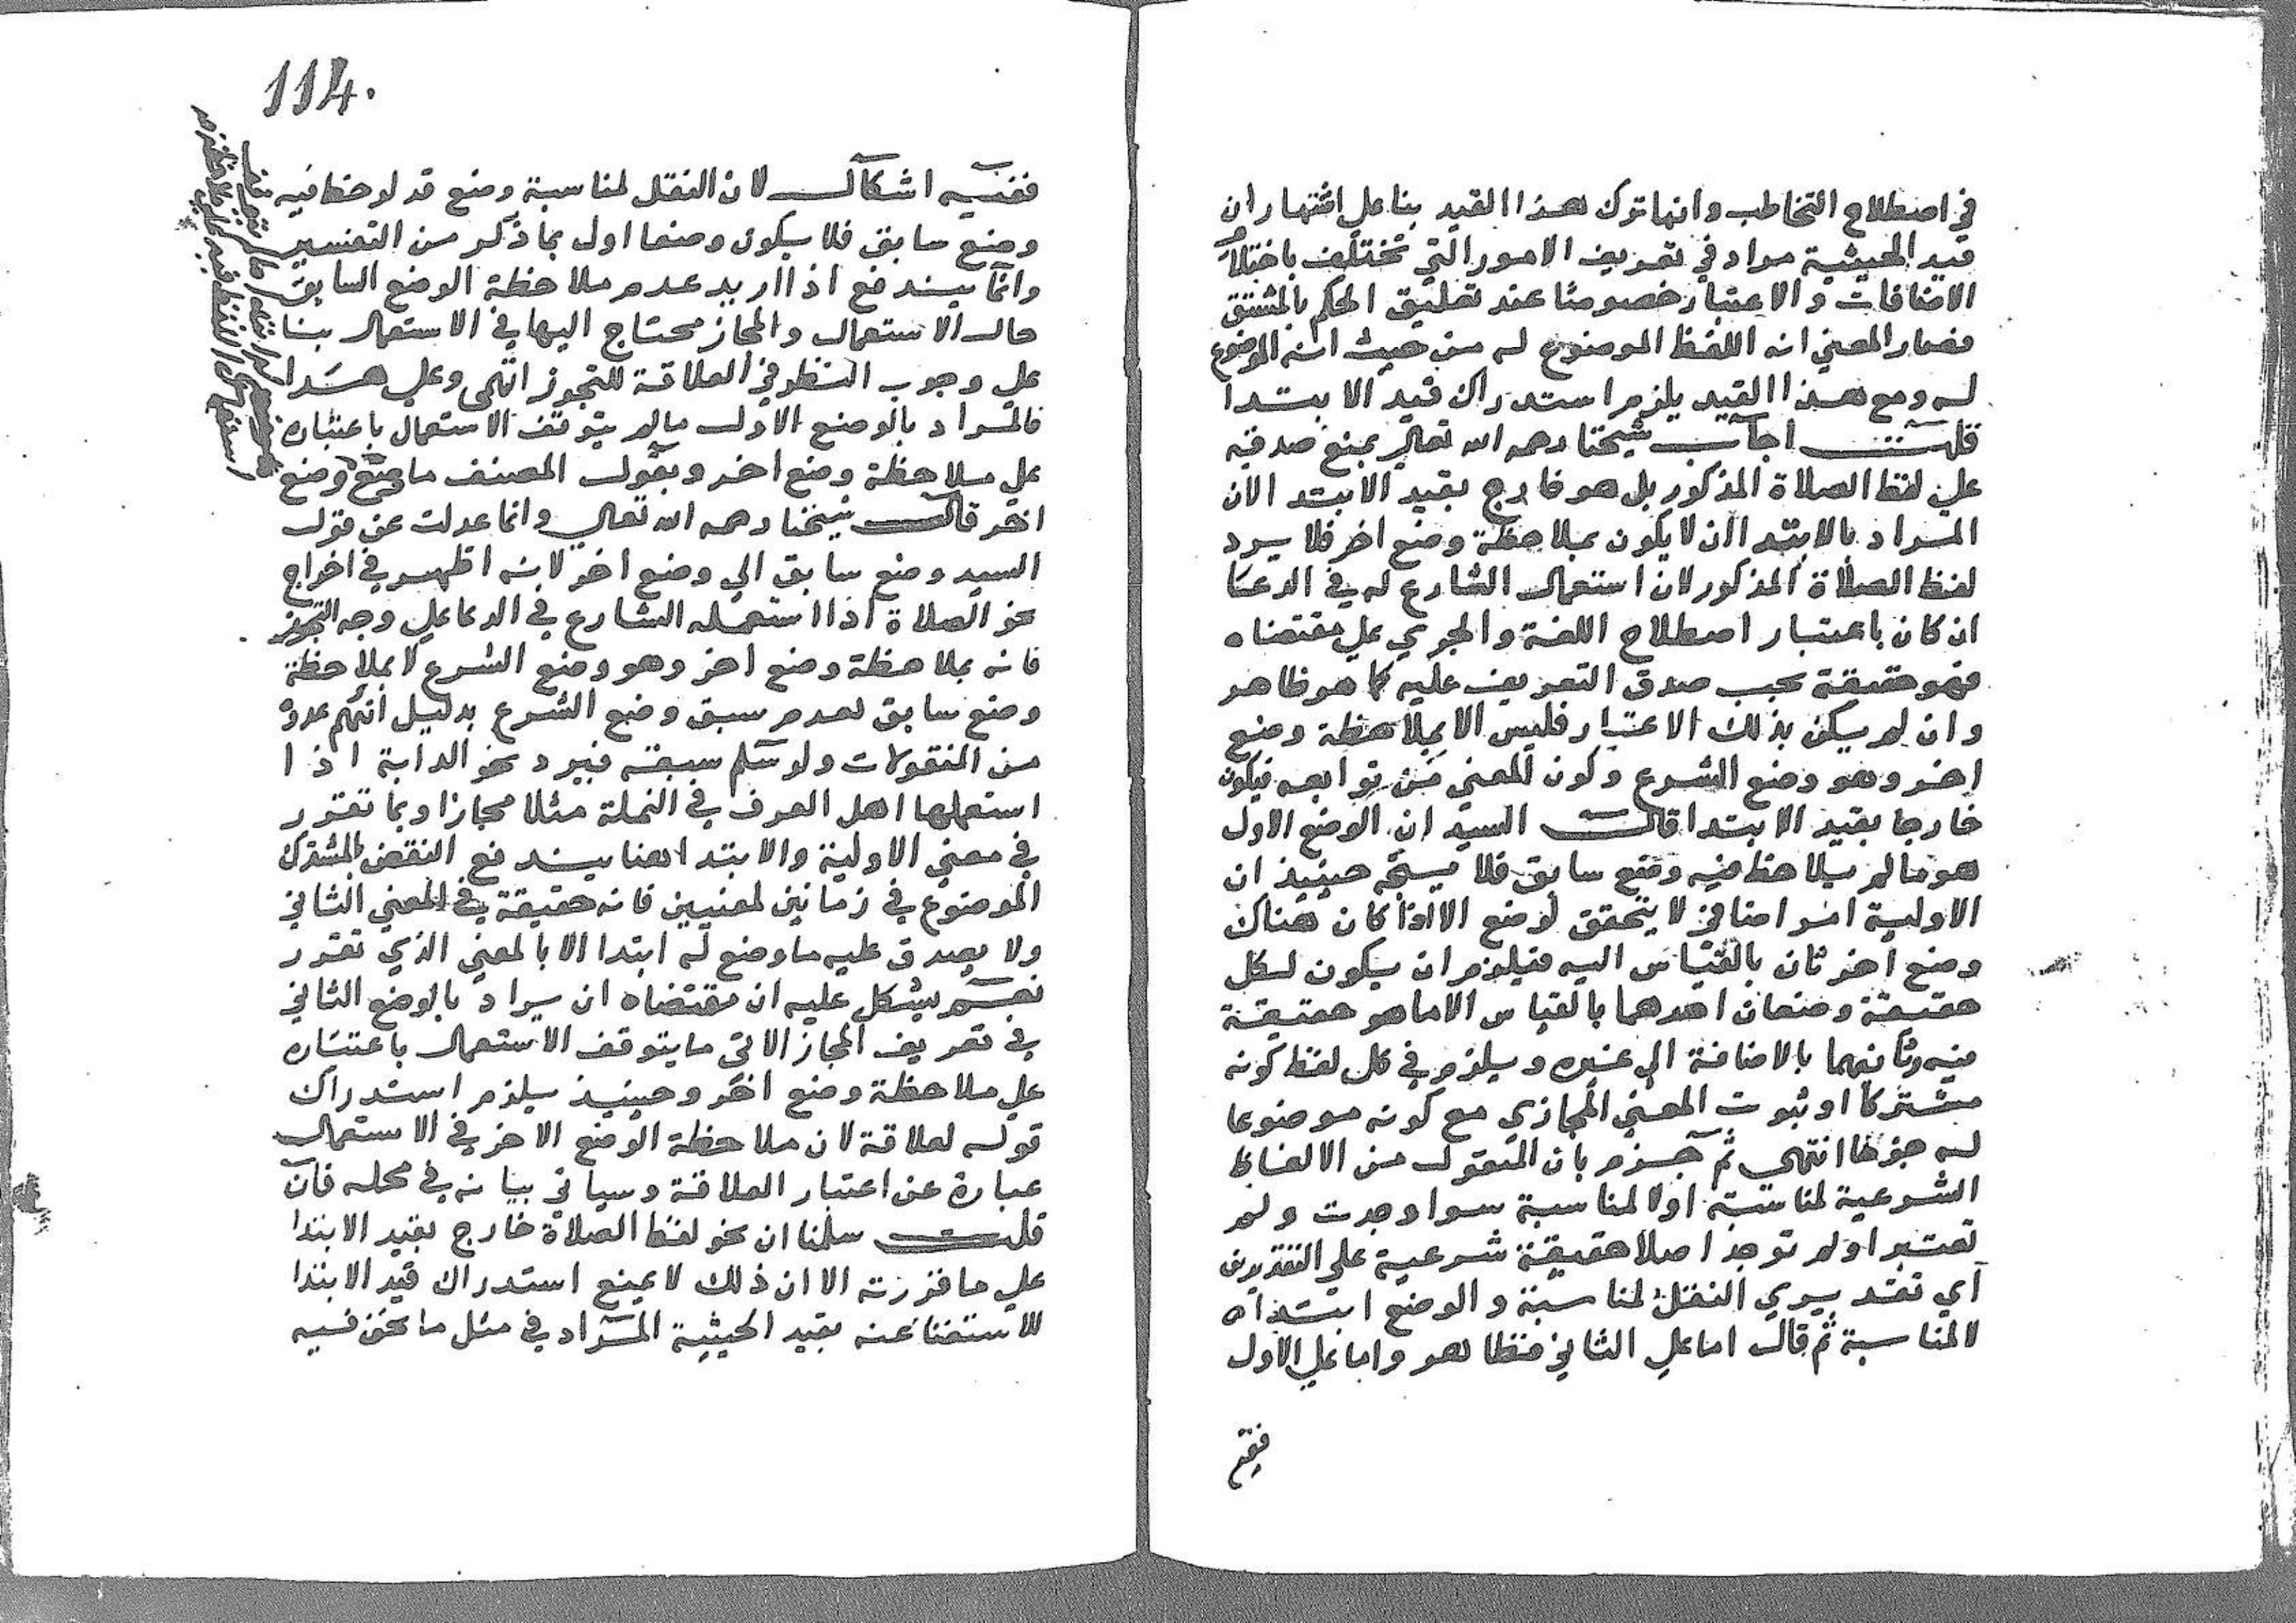 في اصطلاح التخاطب وانما ترك هذا القيد بنا علي اشتهار ان
قيد الحيثية مراد في تعريف الامور التي تختلف باختلاف
الاضافات والاعتبار خصوصا عند تعليق الحكم بالمشتق
فصار المعني انه اللفظ الموضوع له من حيث انه الموضوع
له ومع هذا القيد يلزم استدراك قيد الابتدا
قلت اجاب شيخنا رحمه الله تعالي بمنع صدقه
علي لفظ الصلاة المذكور بل هو خارج بقيد الابتدا لان
المراد بالابتدا ان لا يكون بملاحظة وضع اخر فلا يرد
لفظ الصلاة المذكور لان استعمال الشارع له في الدعا
ان كان باعتبار اصطلاح اللغة والجري علي مقتضاه
فهو حقيقة يجب صدق التعريف عليه كما هو ظاهر
وان لم يكن بذلك الاعتبار فليس الا بملاحظة وضع
اخر وهو وضع الشرع وكون المعني من توابعه فيكون
خارجا بقيد الابتدا قال السيد ان الوضع الاول
هو ما لم يلاحظ فيه وضع سابق فلا يتجه حينيذ ان
الاولية امر اضافي لا يتحقق لوضع الا اذا كان هناك
وضع اخر ثان بالقياس اليه فيلزم ان يكون لكل
حقيقة وضعان احدهما بالقياس الا ما هو حقيقة
فيه وثانيهما بالاضافة الي غيره ويلزم في كل لفظ كونه
مشتركا او ثبوت المعني المجازي مع كونه موضوعا
له جزما انتهي ثم جزم بان المنقول من الالفاظ
الشرعية لمناسبة او لا لمناسبة سوا وجدت ولم
تعتبر او لم توجد اصلا حقيقة شرعية علي التقديرين
اي تقديري النقل لمناسبة والوضع ابتداه
لا لمناسبة ثم قال اما علي الثاني فظاهر واما علي الاول
114.
ففيه اشكال لان النقل لمناسبة وضع قد لوحظ فيه
وضع سابق فلا يكون وضعا اول بما ذكر من التفسير
وانما يندفع اذا اريد عدم ملاحظة الوضع السابق
حال الاستعمال والمجاز محتاج اليها في الاستعمال بنا
علي وجوب النظر في العلاقة للتجوز انتهي وعلي هذا
فالمراد بالوضع الاول ما لم يتوقف الاستعمال باعتباره
علي ملاحظة وضع اخر وبقول المصنف ما وضع وضع
اخر قال شيخنا رحمه الله تعالي وانما عدلت عن قول
السيد وضع سابق الي وضع اخر لانه اظهر في اخراج
نحو الصلاة اذا استعمله الشارع في الدعا علي وجه التجوز
فانه بملاحظة وضع اخر وهو وضع الشرع لا بملاحظة
وضع سابق لعدم سبق وضع الشرع بدليل انهم عدوه
من المنقولات ولو سلم سبقه فيرد نحو الدابة اذا
استعملها اهل العرف في النملة مثلا مجازا وبما تقرر
في معني الاولية والابتدا هنا يندفع النقض بالمشترك
الموضوع في زمانين لمعنيين فانه حقيقة في المعني الثاني
ولا يصدق عليه ما وضع له ابتدا الا بالمعني الذي تقرر
نعم يشكل عليه ان مقتضاه ان يراد بالوضع الثاني
في تعريف المجاز الاتي ما يتوقف الاستعمال باعتباره
علي ملاحظة وضع اخر وحينيذ يلزم استدراك
قوله لعلاقة لان ملاحظة الوضع الاخر في الاستعمال
عبارة عن اعتبار العلاقة وسياتي بيانه في محله فان
قلت سلمنا ان نحو لفظ الصلاة خارج بقيد الابتدا
علي ما قررته الا ان ذلك لا يمنع استدراك قيد الابتدا
للاستغنا عنه بقيد الحيثية المراد في مثل ما نحن فيه